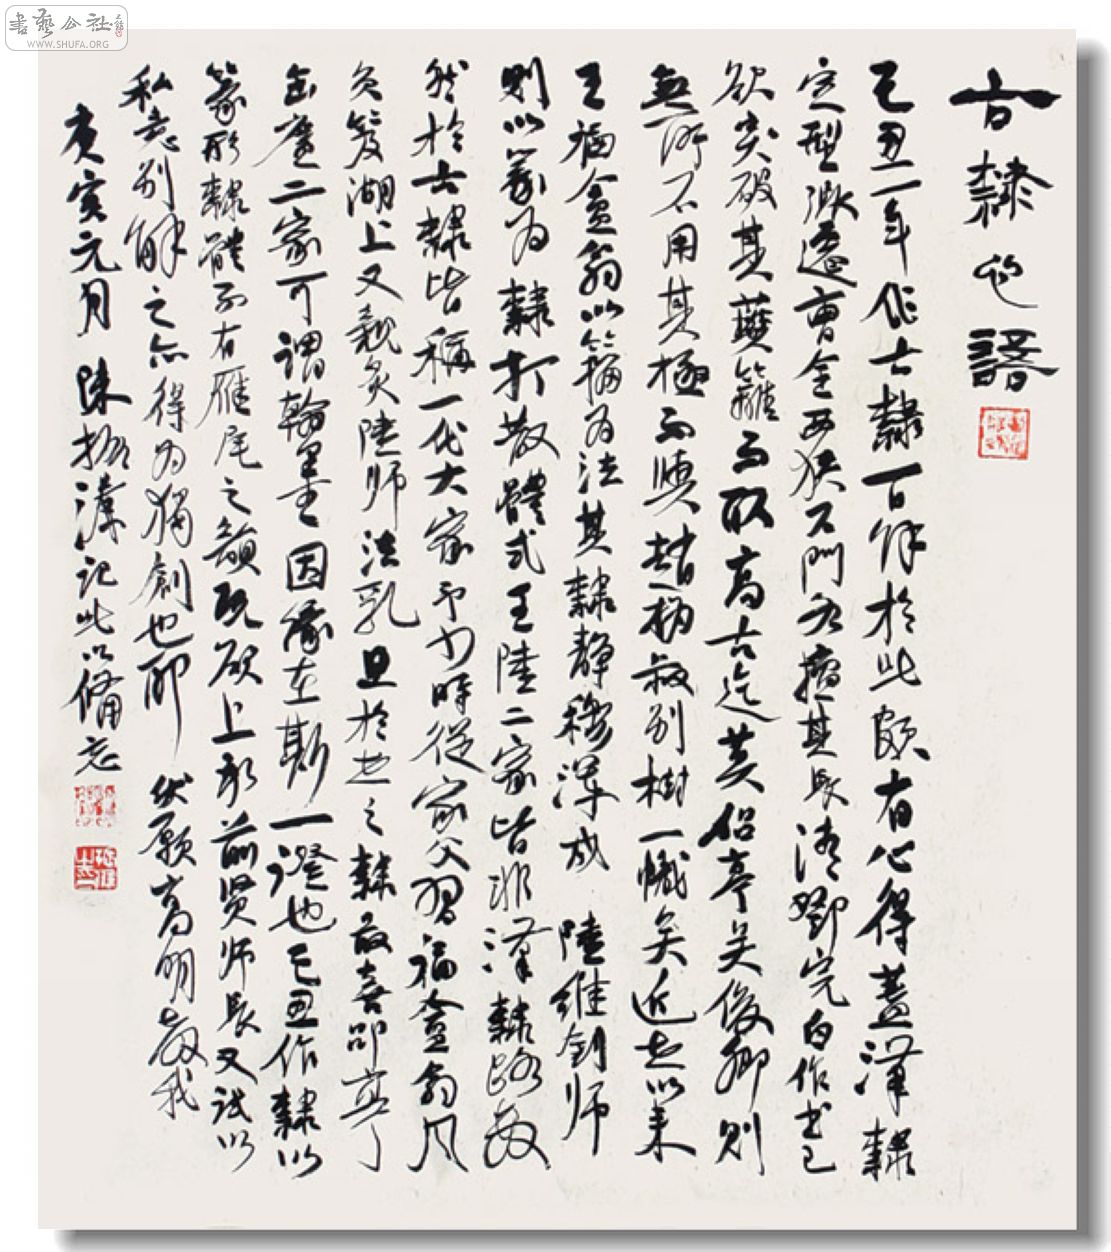 書藝公社
WWW.SHUFA.ORG
古隸心語
己丑一年作古隸一百餘於此頗有心得蓋漢隸
定型漸遷曹全西狹石門各擅其長清鄧完白作書已
欲突破其藩籬而取高古迄莫邵亭吴俊卿則
無所不用其極而與趙撝叔別樹一幟矣近世以来
王福盦翁以籀為法其隸静穆渾成 陸維釗師
則以篆為隸打散體式王陸二家皆非漢隸路數
然於古隸皆稱一代大家予少時從家父習福盦翁風
負笈湖上又親炙陸師法乳且於世之隸最喜邵亭
缶廬二家可謂翰墨因緣在斯一證也己丑作隸以
篆形隸體不有雁尾之類既欲上承前賢師長又試以
私意別解之亦得為獨創也耶 伏願高明教我
庚寅元月 陳振濂記此以備忘